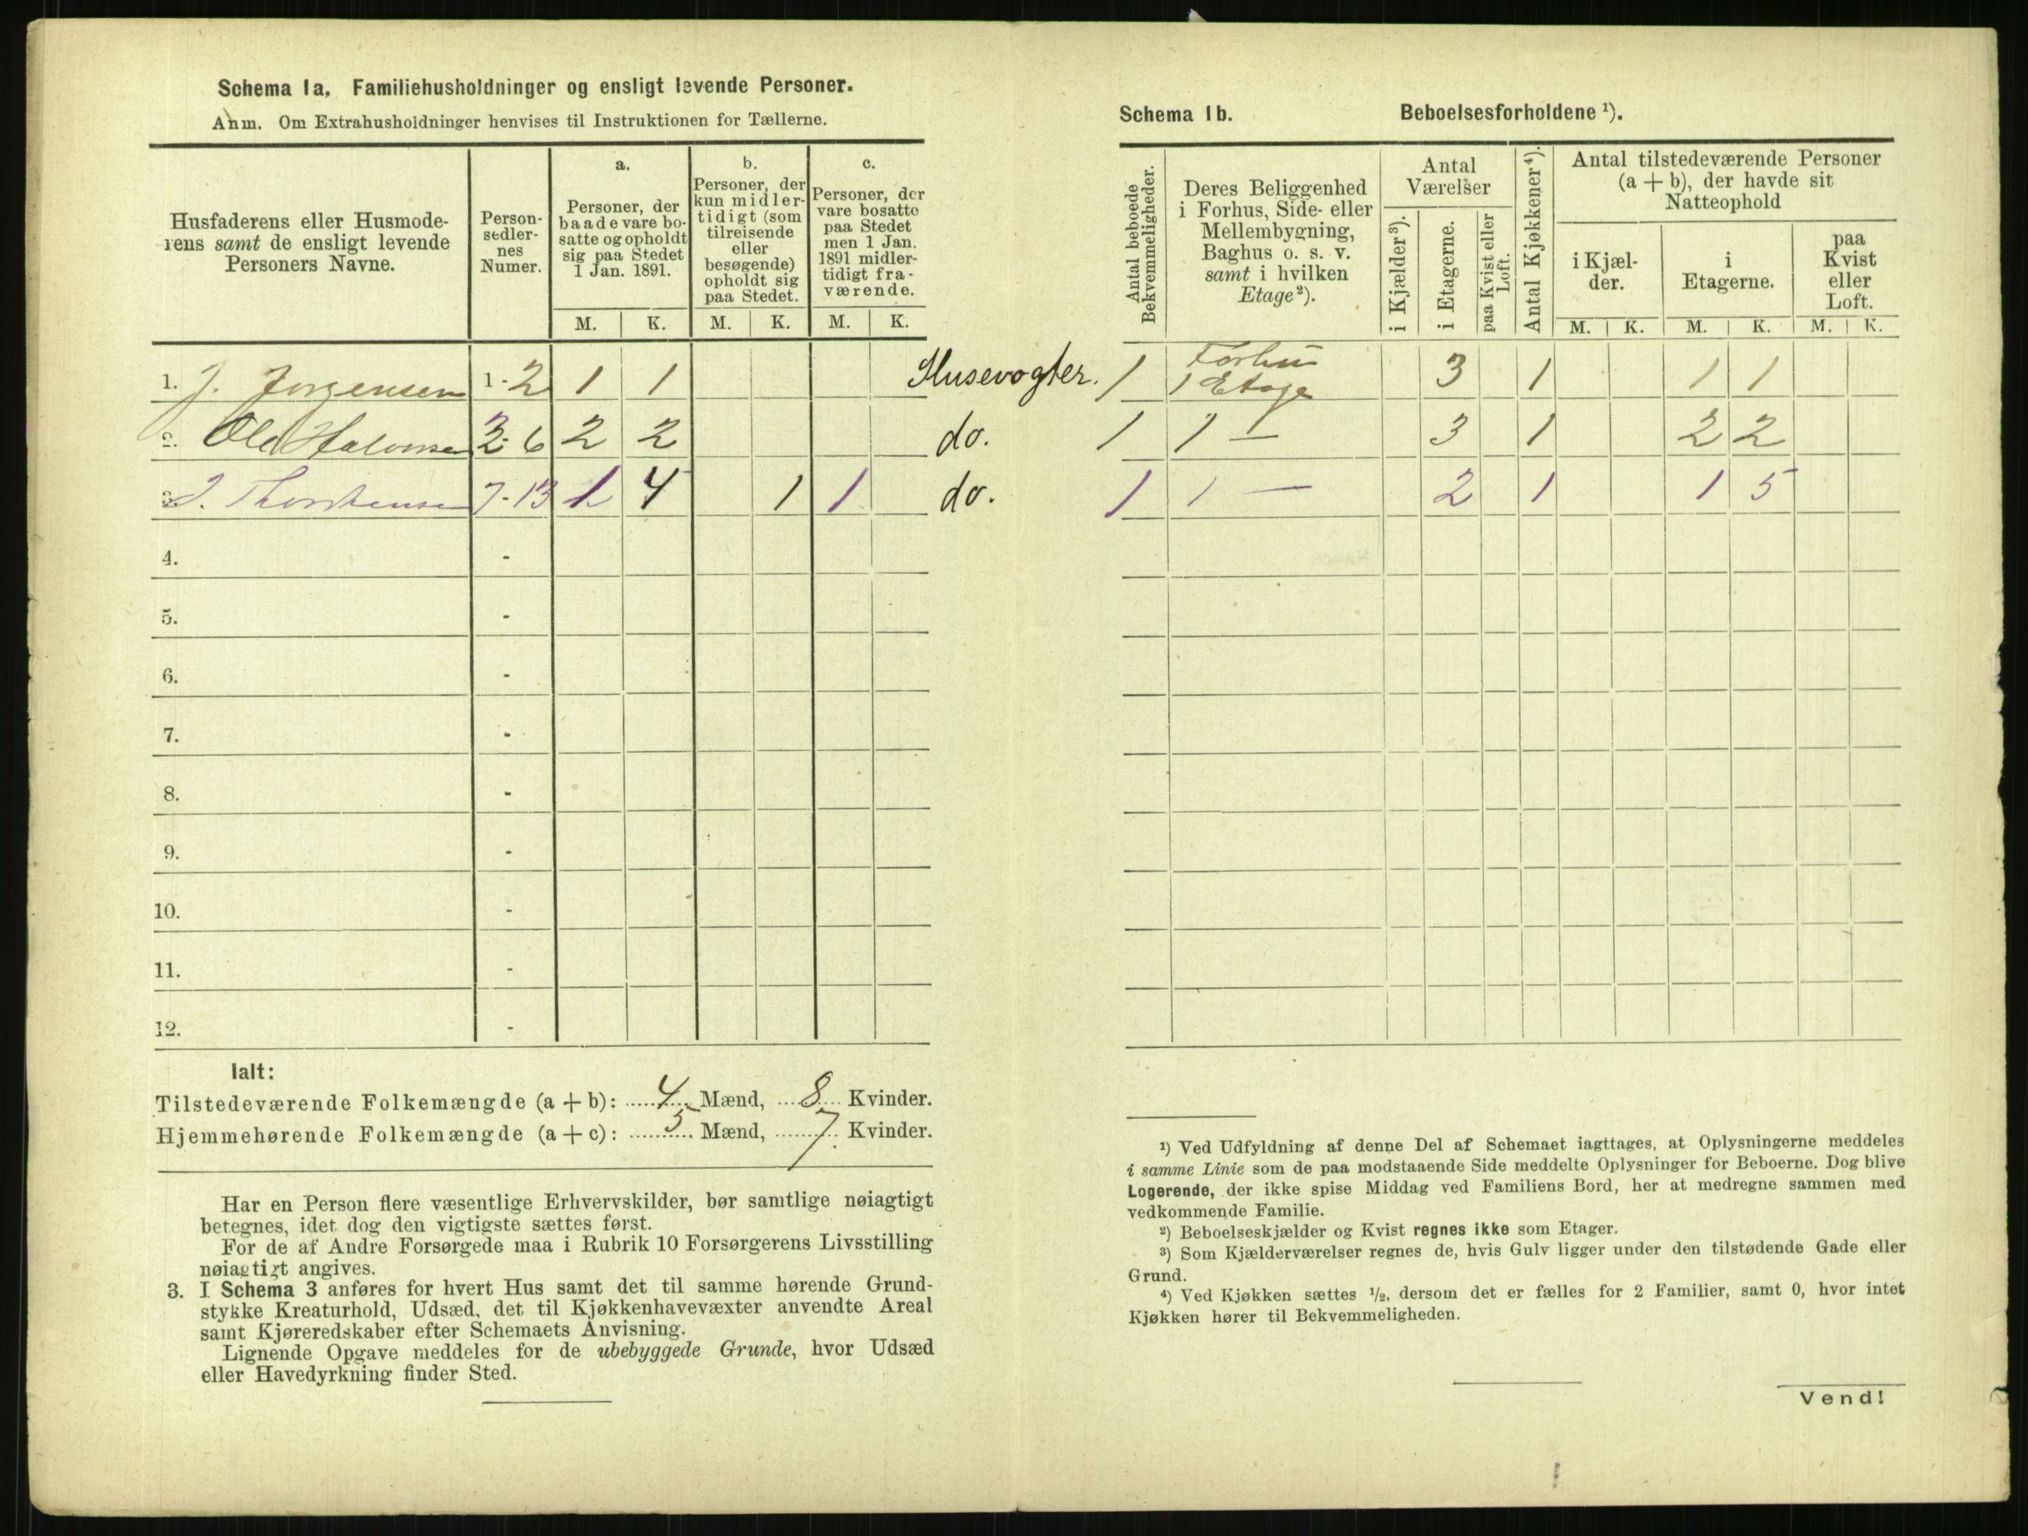 Schema 1a. Familiehusholdninger og ensligt levende Personer.
Anm. Om Extrahusholdninger henvises til Instruktionen for Tællerne.
Husfaderens eller Husmode-
rens samt de ensligt levende
Personers Navne.
Person-
sedler-
nes
Numer.
a.
Personer, der
baade vare bo-
satte og opholdt
sig paa Stedet
1 Jan. 1891.
b.
Personer, der
kun midler-
tidigt (som
tilreisende
eller
besøgende)
opholdt sig
paa Stedet.
c.
Personer, der
vare bosatte
paa Stedet
men 1 Jan.
1891 midler-
tidigt fra-
værende.
M. K. M. K. M. K.
1. J. Jorgensen 1-2 1 1 Husevogter.
2. Ole Halvorsen 3-6 2 2 do.
3. J. 7-13 1 4 1 1 do.
4. -
5. -
6. -
7. -
8. -
9. -
10. -
11. -
12. -
Ialt:
Tilstedeværende Folkemængde (a + b): 4 Mænd, 8 Kvinder.
Hjemmehørende Folkemængde (a + c): 5 Mænd, 7 Kvinder.
Har en Person flere væsentlige Erhvervskilder, bør samtlige nøiagtigt
betegnes, idet dog den vigtigste sættes først.
For de af Andre Forsørgede maa i Rubrik 10 Forsørgerens Livsstilling
nøiagtigt angives.
3. I Schema 3 anføres for hvert Hus samt det til samme hørende Grund-
stykke Kreaturhold, Udsæd, det til Kjøkkenhavevæxter anvendte Areal
samt Kjøreredskaber efter Schemaets Anvisning.
Lignende Opgave meddeles for de ubebyggede Grunde, hvor Udsæd
eller Havedyrkning finder Sted.
Schema 1b. Beboelsesforholdene ¹).
Antal beboede
Bekvemmeligheder.
Deres Beliggenhed
i Forhus, Side- eller
Mellembygning,
Baghus o. s. v.
samt i hvilken
Etage²).
Antal
Værelser
i Kjælder³).
i Etagerne.
paa Kvist eller
Loft.
Antal Kjøkkener⁴).
Antal tilstedeværende Personer
(a + b), der havde sit
Natteophold
i Kjæl-
der.
i
Etagerne.
paa
Kvist
eller
Loft.
M. K. M. K. M. K.
1 Forhus 1 Etage 3 1 1 1
1 1 — 3 1 2 2
1 1 — 2 1 1 5
¹) Ved Udfyldning af denne Del af Schemaet iagttages, at Oplysningerne meddeles
i samme Linie som de paa modstaaende Side meddelte Oplysninger for Beboerne. Dog blive
Logerende, der ikke spise Middag ved Familiens Bord, her at medregne sammen med
vedkommende Familie.
²) Beboelseskjælder og Kvist regnes ikke som Etager.
³) Som Kjælderværelser regnes de, hvis Gulv ligger under den tilstødende Gade eller
Grund.
⁴) Ved Kjøkken sættes ½, dersom det er fælles for 2 Familier, samt 0, hvor intet
Kjøkken hører til Bekvemmeligheden.
Vend!